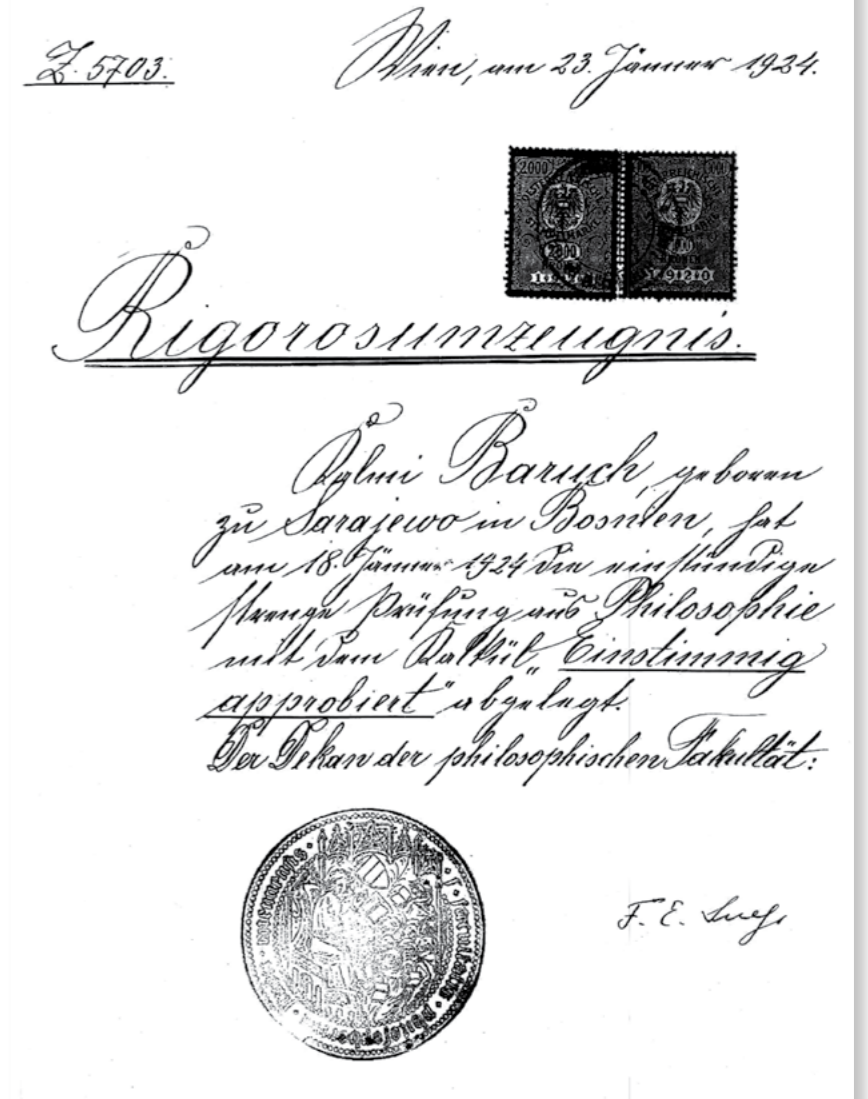 Z. 5703.
Wien, am 23. Jänner 1924.
2000
2000
1 9 2 0
Rigorosumzeugnis.
Kalmi Baruch, geboren
zu Sarajewo in Bosnien, hat
am 18. Jänner 1924 die einstündige
strenge Prüfung aus Philosophie
mit dem Kalkül „Einstimmig
approbiert" abgelegt.
Der Dekan der philosophischen Fakultät:
F. E. Sueß